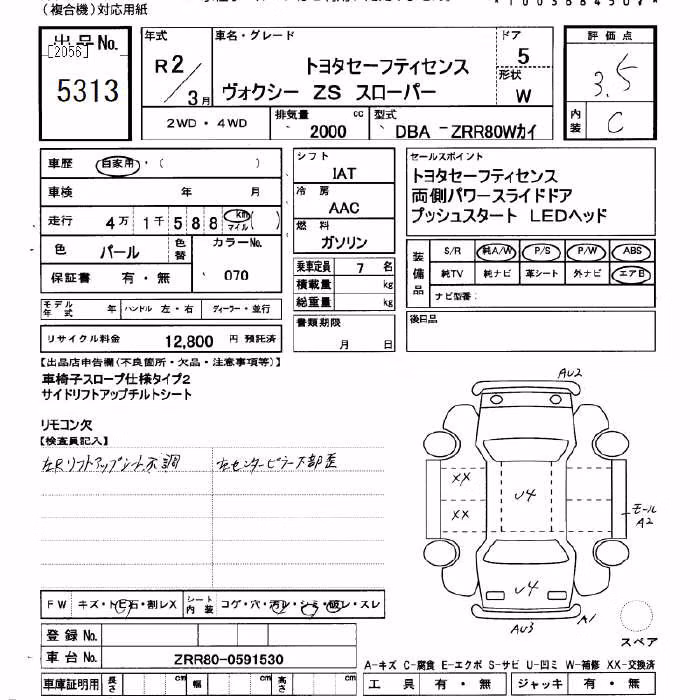 (複合機)対応用紙
出品No. [2056] 5313
年式 R2/3月
車名・グレード トヨタセーフティセンス
ヴォクシー ZS スローパー
ドア 5
形状 W
評価点 3.5
内装 C
2WD・4WD
排気量 2000 cc
型式 DBA-ZRR80Wカイ
車歴 自家用・( )
車検 年 月
走行 4万1千588 km マイル ( )
色 パール 色替 カラーNo. 070
保証書 有・無
モデル年式 年 ハンドル 左・右 ディーラー・並行
リサイクル料金 12,800 円 預託済
シフト IAT
冷房 AAC
燃料 ガソリン
乗車定員 7 名
積載量 kg
総重量 kg
書類期限 月 日
セールスポイント
トヨタセーフティセンス
両側パワースライドドア
プッシュスタート LEDヘッド
装備品 S/R 純A/W P/S P/W ABS
純TV 純ナビ 革シート 外ナビ エアB
ナビ型番:
後日品
【出品店申告欄(不良箇所・欠品・注意事項等)】
車椅子スロープ仕様タイプ2
サイドリフトアップチルトシート
リモコン欠
【検査員記入】
左Rリフトアップシート不調
左センターピラー下部歪
AU2
XX
XX
U4
モール
A2
U4
AU3
A1
スペア
FW キズ・トビ石・割レX
シート内装 コゲ・穴・汚レ・シミ・破レ・スレ
登録No.
車台No. ZRR80-0591530
車庫証明用 長さ cm 幅 cm 高さ cm
A-キズ C-腐食 E-エクボ S-サビ U-凹ミ W-補修 XX-交換済
工具 有・無 ジャッキ 有・無